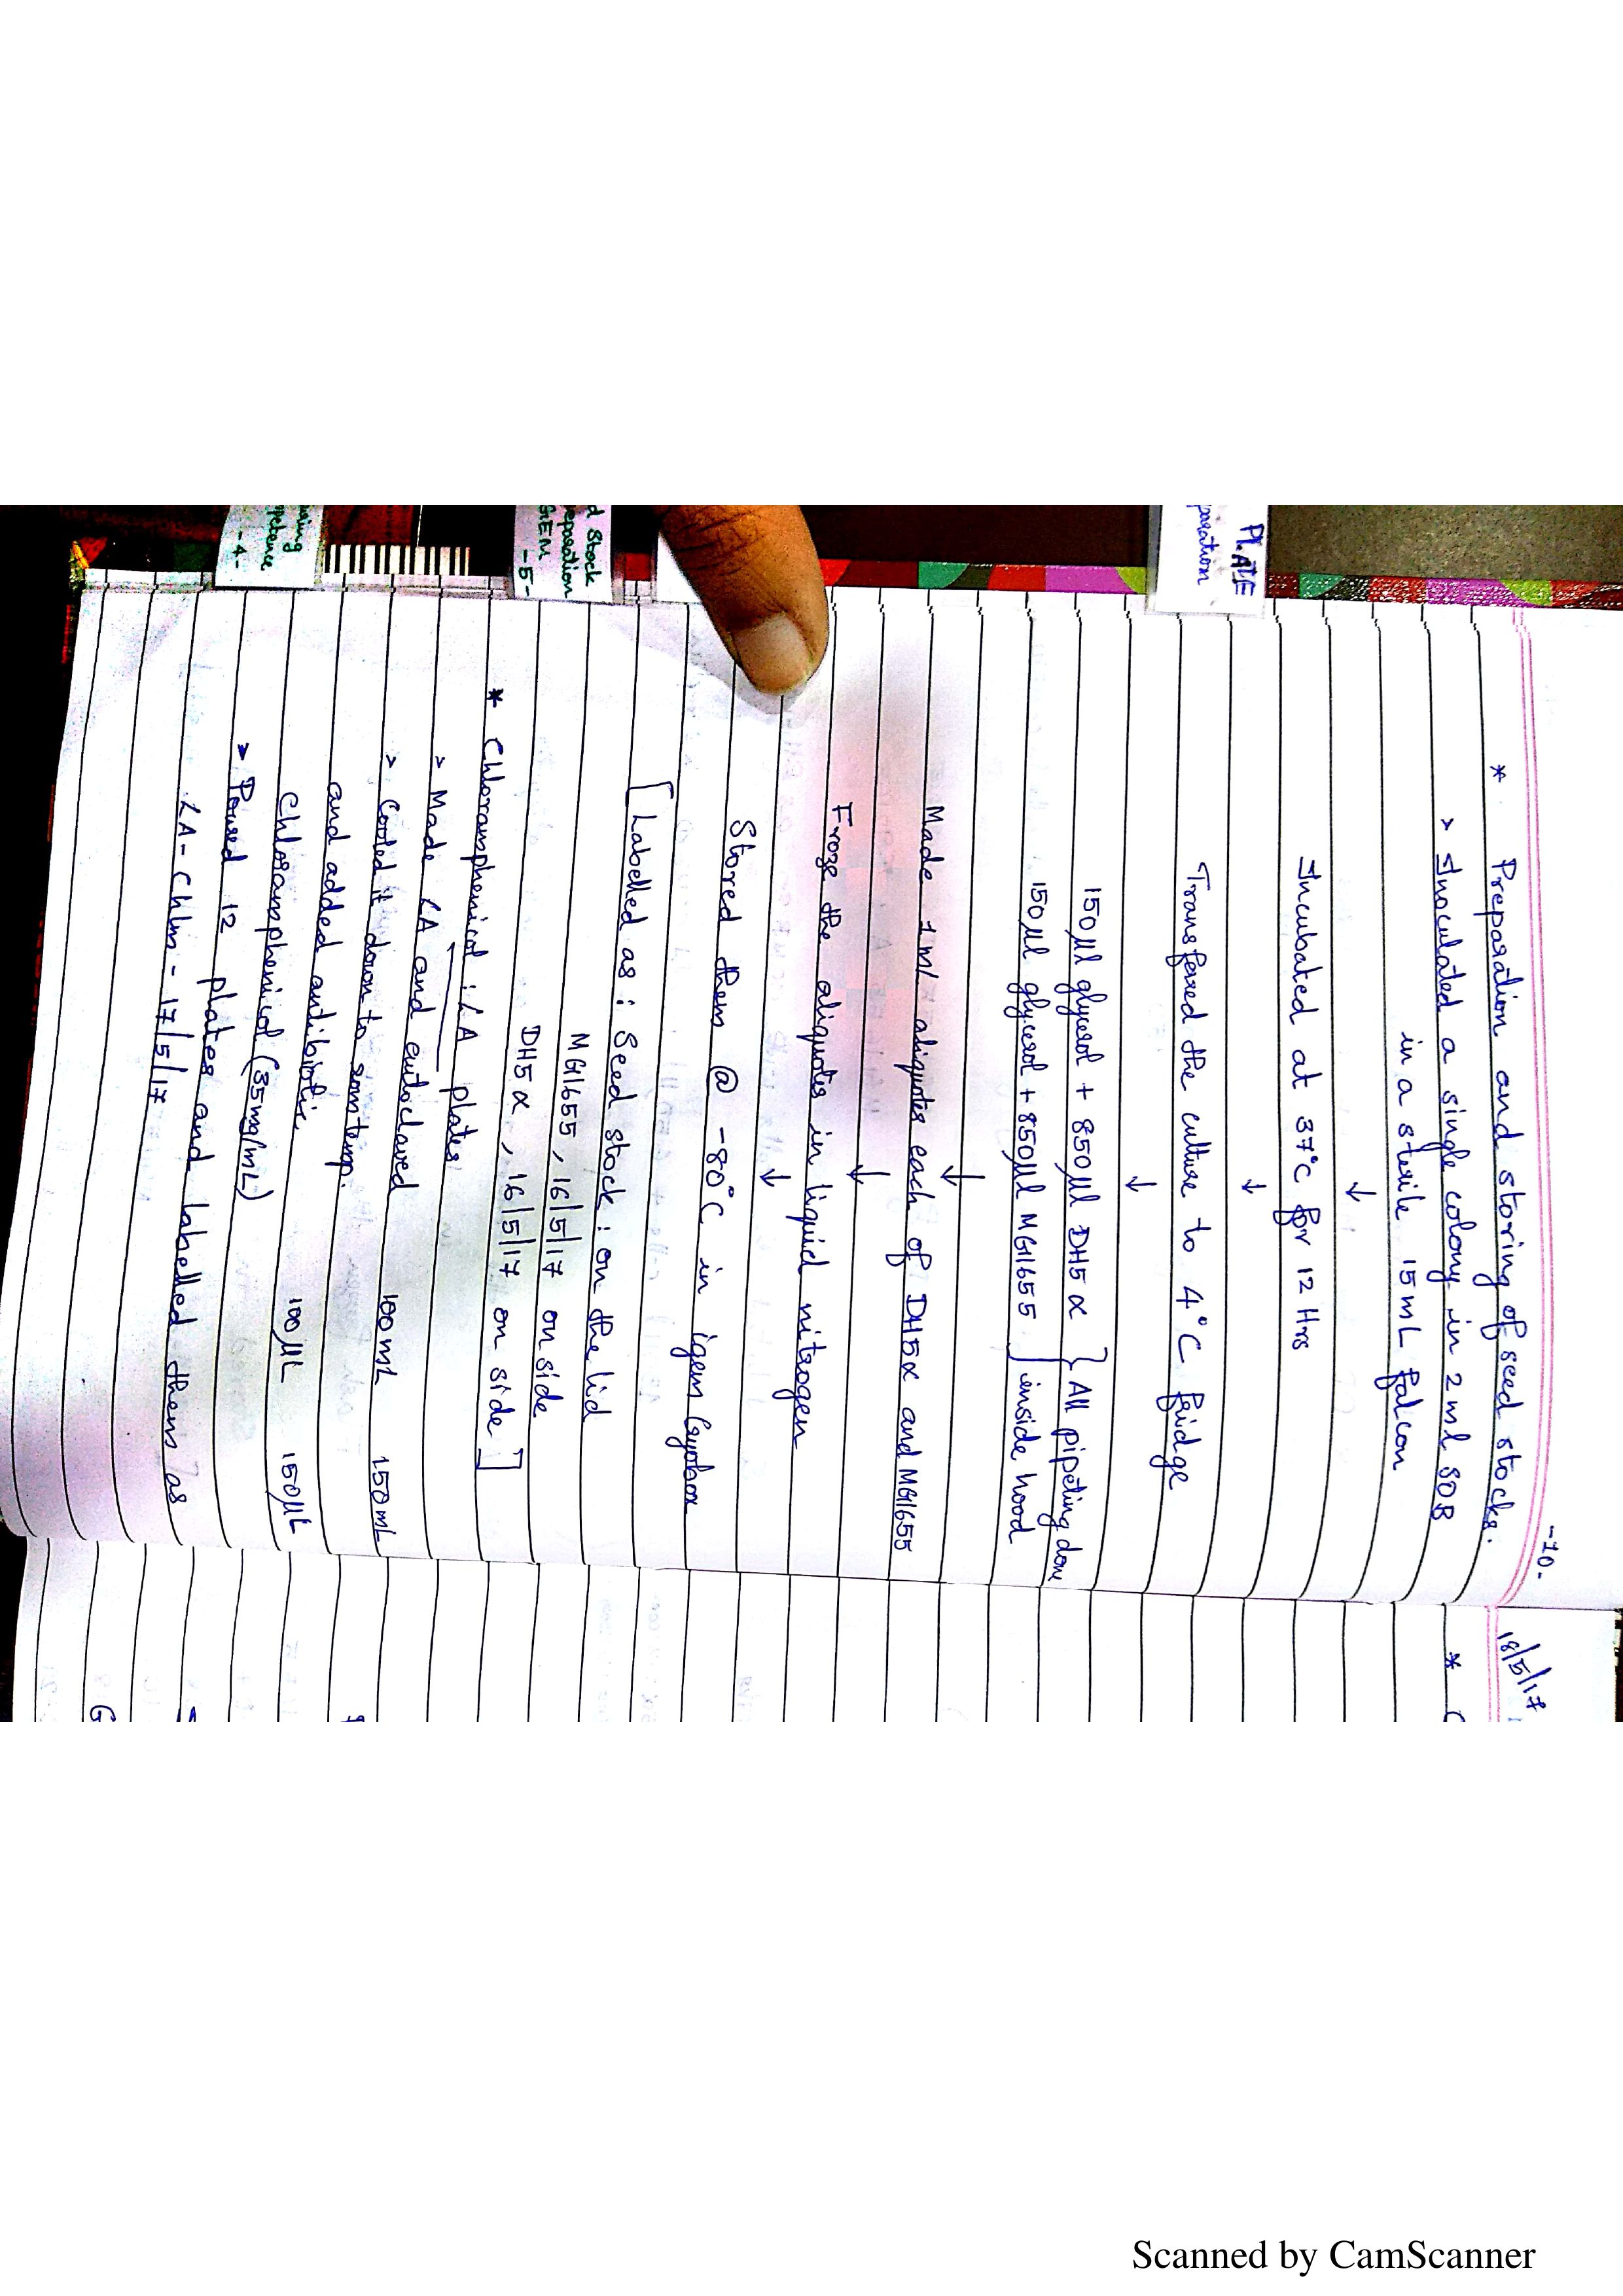 -10-
* Preparation and storing of seed stocks.
> Inoculated a single colony in 2ml SOB
in a sterile 15mL falcon
↓
Incubated at 37°C for 12 Hrs
↓
Transfered the culture to 4°C fridge
↓
150µl glycerol + 850µl DH5α } All pipeting done
150µl glycerol + 850µl MG1655 } inside hood
↓
Made 1ml aliquotes each of DH5α and MG1655
↓
Froze the aliquotes in liquid nitrogen
↓
Stored them @ -80°C in igem Cryobox
[Labelled as : Seed stock : on the lid
MG1655, 16/5/17 on side
DH5α, 16/5/17 on side]
* Chloramphenicol : LA plates
> Made LA and autoclaved
> Cooled it down to room temp. 100mL 150mL
and added antibiotic.
Chloramphenicol (35mg/mL) 100µL 150µL
> Poured 12 plates and labelled them as
LA-Chlm - 17/5/17
18/5/17
*
PLATE
d Stock
GEM
-5-
-4-
Scanned by CamScanner